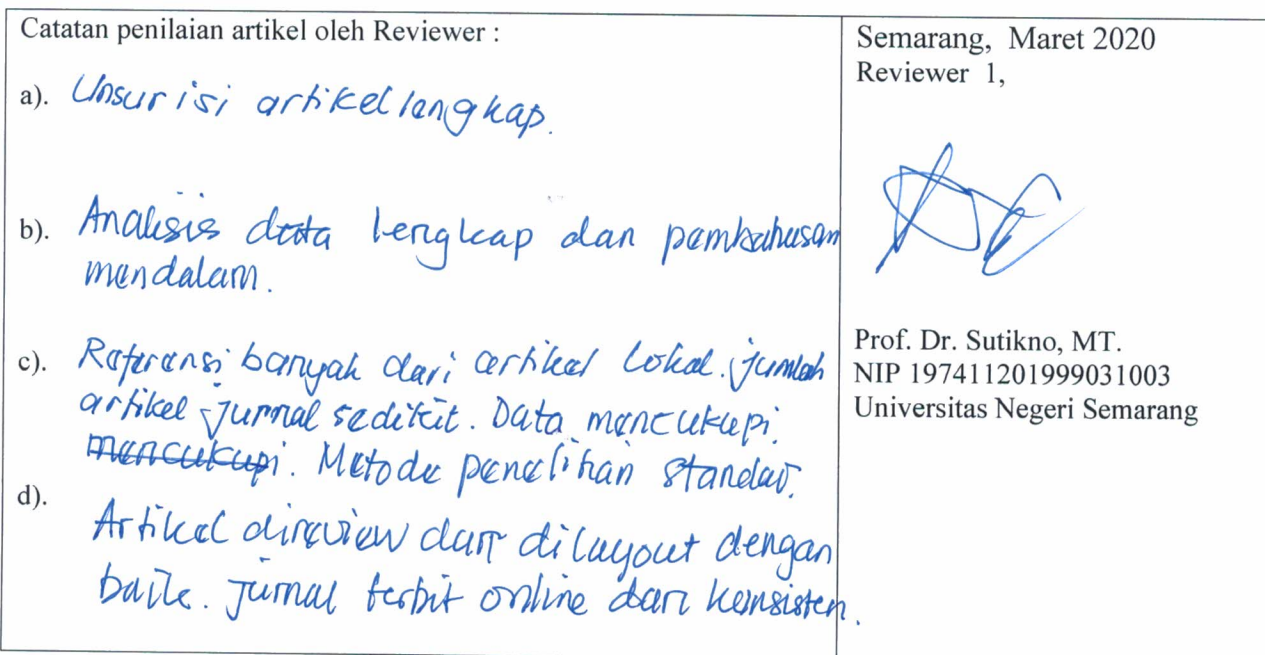 Catatan penilaian artikel oleh Reviewer :
a). Unsur isi artikel lengkap.
b). Analisis data lengkap dan pembahasan
mendalam.
c). Referensi banyak dari artikel lokal. jumlah
artikel jurnal sedikit. Data mencukupi.
mencukupi. Metode penelitian standar.
d).
Artikel direview dan dilayout dengan
baik. Jurnal terbit online dan konsisten.
Semarang, Maret 2020
Reviewer 1,
Prof. Dr. Sutikno, MT.
NIP 197411201999031003
Universitas Negeri Semarang